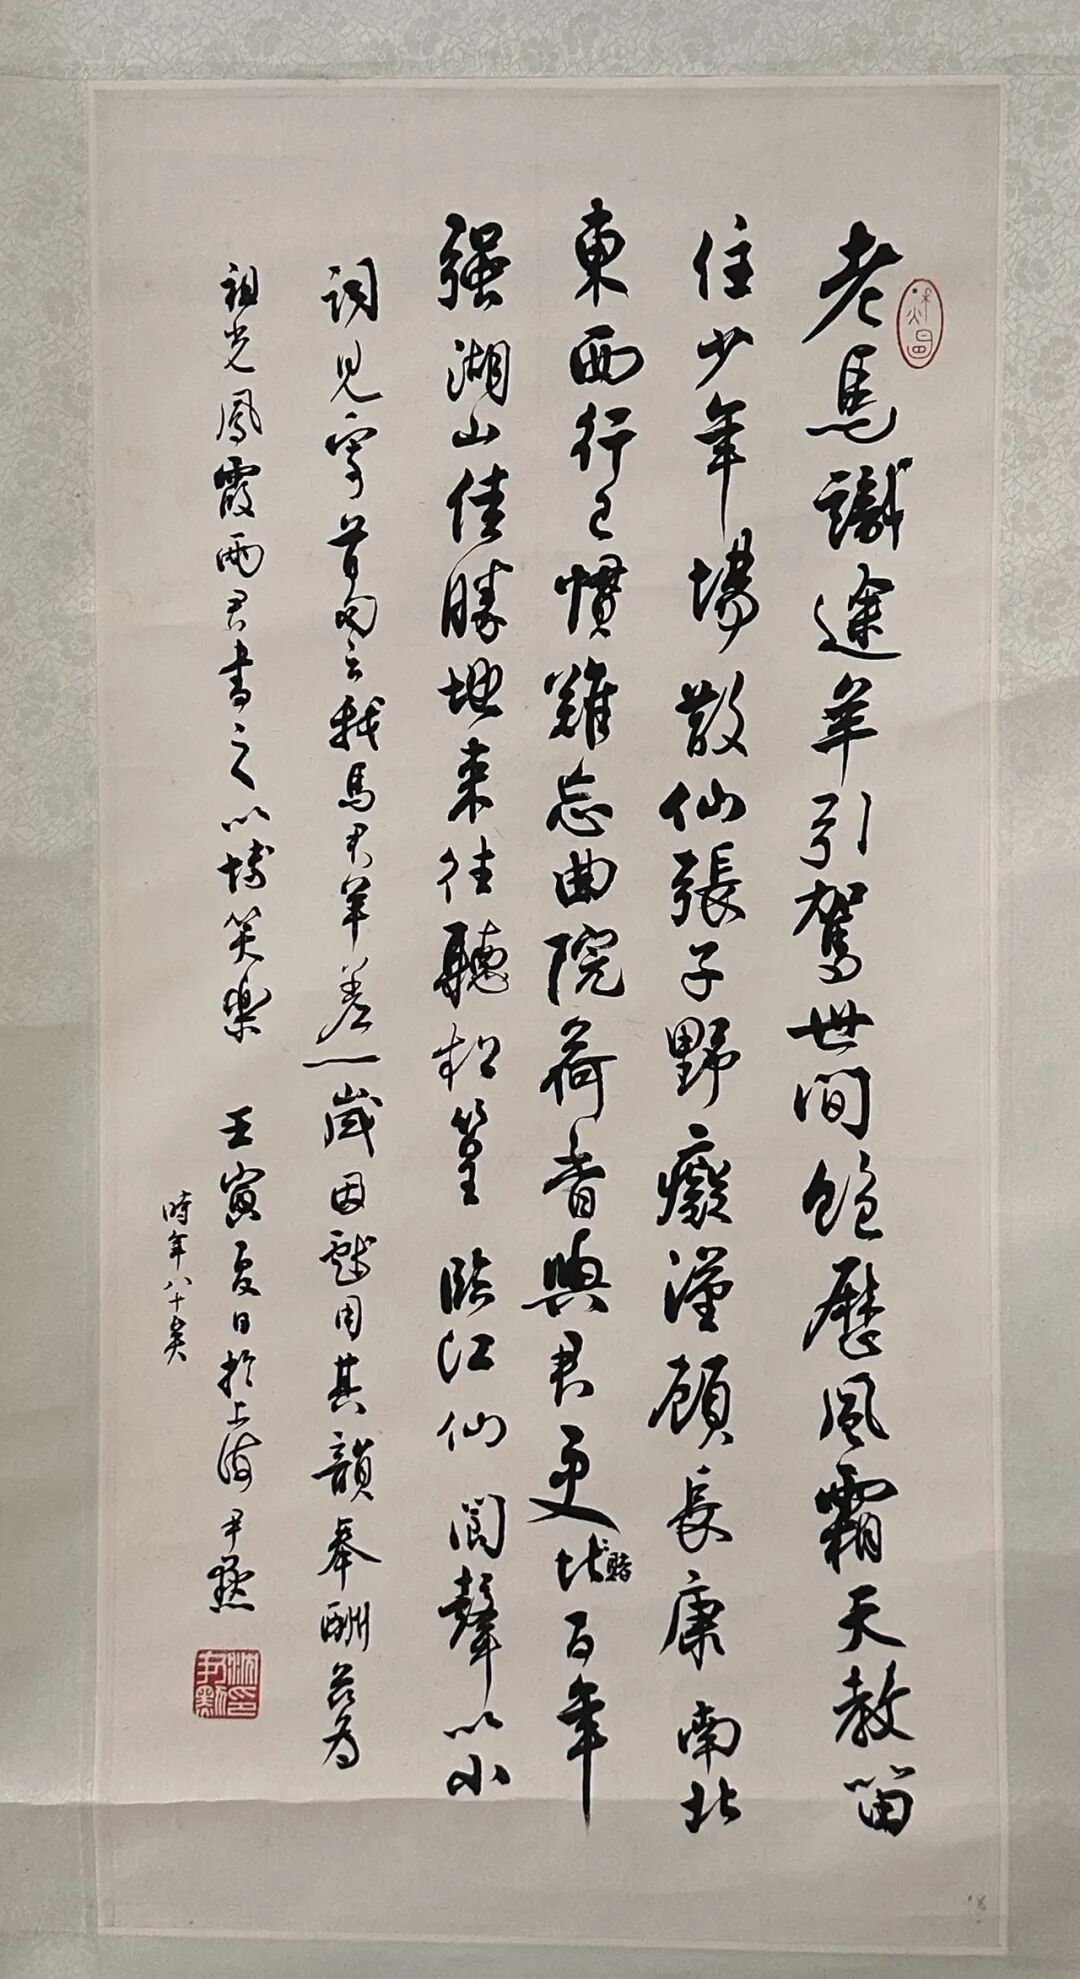 老馬識途羊引駕世間飽歷風霜天教留
住少年場散仙張子野癡漢顧長康南北
東西行已慣難忘曲院荷香與君更比賭百年
强湖山佳勝地來往聽松篁 臨江仙 閬聲以小
詞見寄首句云我馬君羊差一歲因戲用其韻奉酬茲為
祖光鳳霞兩君書之以博笑樂 壬寅夏日於上海尹默
時年八十矣
沈尹默印